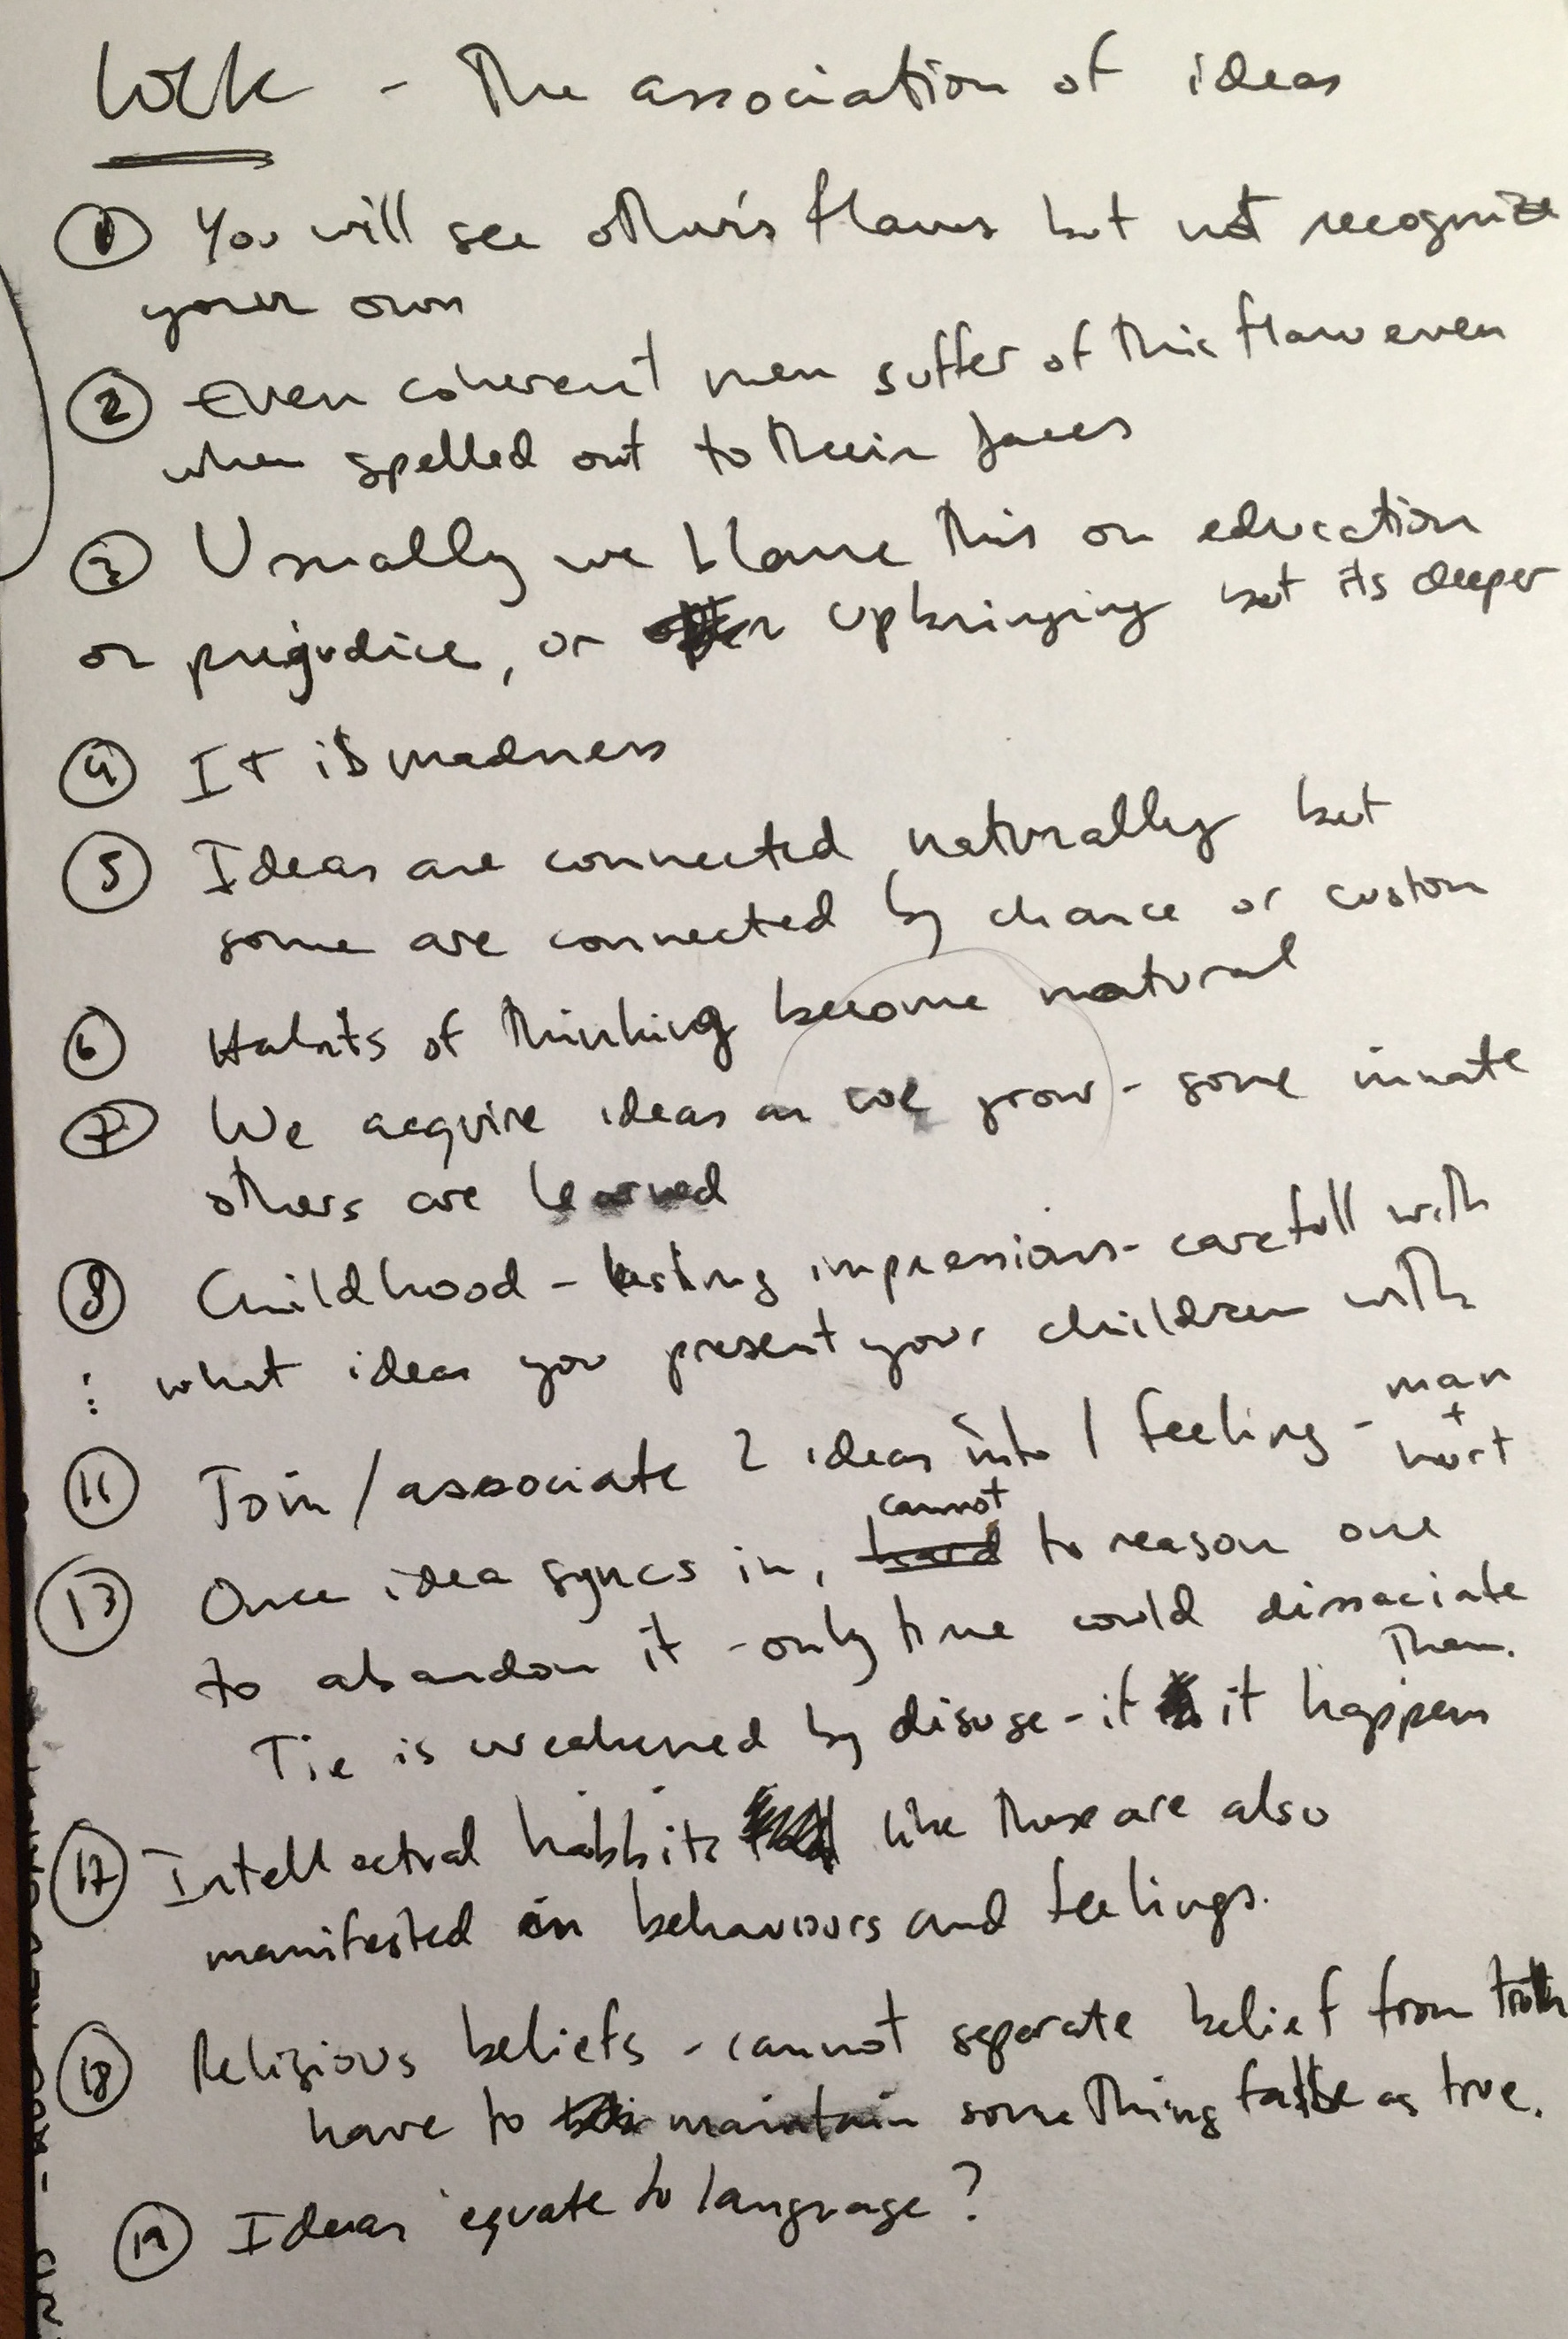 Locke - The association of ideas
① You will see other's flaws but not recognize
your own
② Even coherent men suffer of this flaw even
when spelled out to their faces
③ Usually we blame this on education
or prejudice, or upbringing but its deeper
④ It is madness
⑤ Ideas are connected naturally but
some are connected by chance or custom
⑥ Habits of thinking become natural
⑦ We acquire ideas as we grow - some innate
others are learned
⑧ Childhood - lasting impressions - carefull with
: what ideas you present your children with
⑪ Join / associate 2 ideas into 1 feeling - man
+
hurt
cannot
⑬ Once idea syncs in, hard to reason one
to abandon it - only time could dissaciate
them.
Tie is weakened by disuse - if it happens
⑰ Intellectual habbits like these are also
manifested in behaviours and feelings.
⑱ Religious beliefs - cannot separate belief from truth
have to maintain something false as true.
⑲ Ideas equate to language?